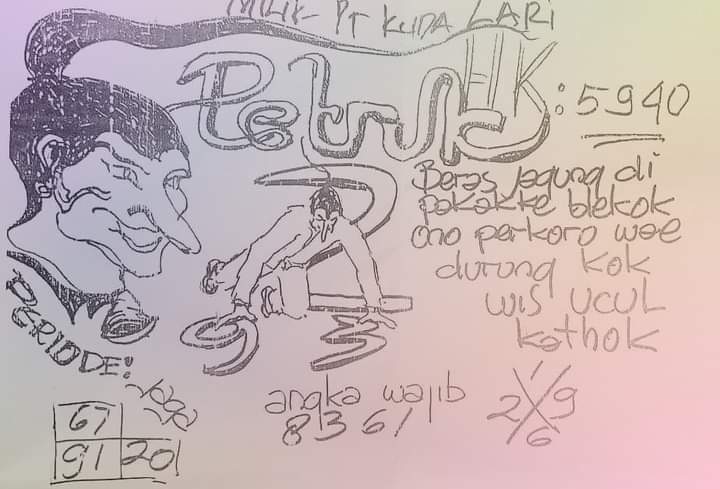 MILIK PT KUDA LARI
Petruk HK: 5940
Beras jagung di
pakakke blekok
ono perkoro wae
durung kok
wis ucul
kathok
2
9 3
PERIODE!
Jaga
angka wajib
8361
67
91 20
1
2 X 9
6